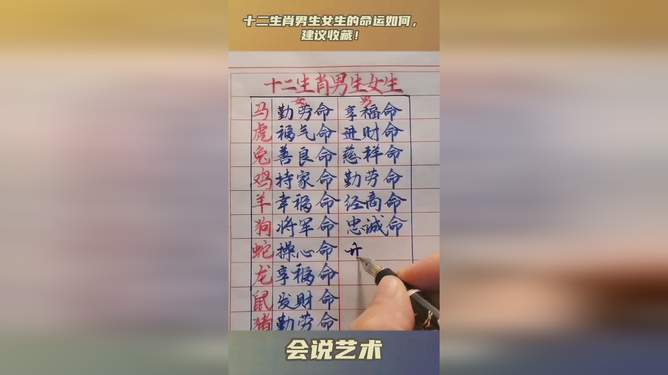 十二生肖男生女生的命运如何，
建议收藏！
十二生肖男生女生
女 男
马 勤劳命 享福命
虎 福气命 进财命
兔 善良命 慈祥命
鸡 持家命 勤劳命
羊 幸福命 经商命
狗 将军命 忠诚命
蛇 操心命
龙 享福命
鼠 发财命
猪 勤劳命
会说艺术